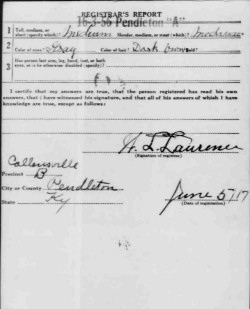 REGISTRAR'S REPORT
16-3-56 Pendleton "A"
1 Tall, medium, or short (specify which)? Medium Slender, medium, or stout (which)? Medium
2 Color of eyes? Gray Color of hair? Dark brown
3 Has person lost arm, leg, hand, foot, or both eyes, or is he otherwise disabled (specify)?
I certify that my answers are true, that the person registered has read his own answers, that I have witnessed his signature, and that all of his answers of which I have knowledge are true, except as follows:
L. Laurence
(Signature of registrar)
Precinct B
City or County Pendleton
State Ky
June 5/17
(Date of registration)